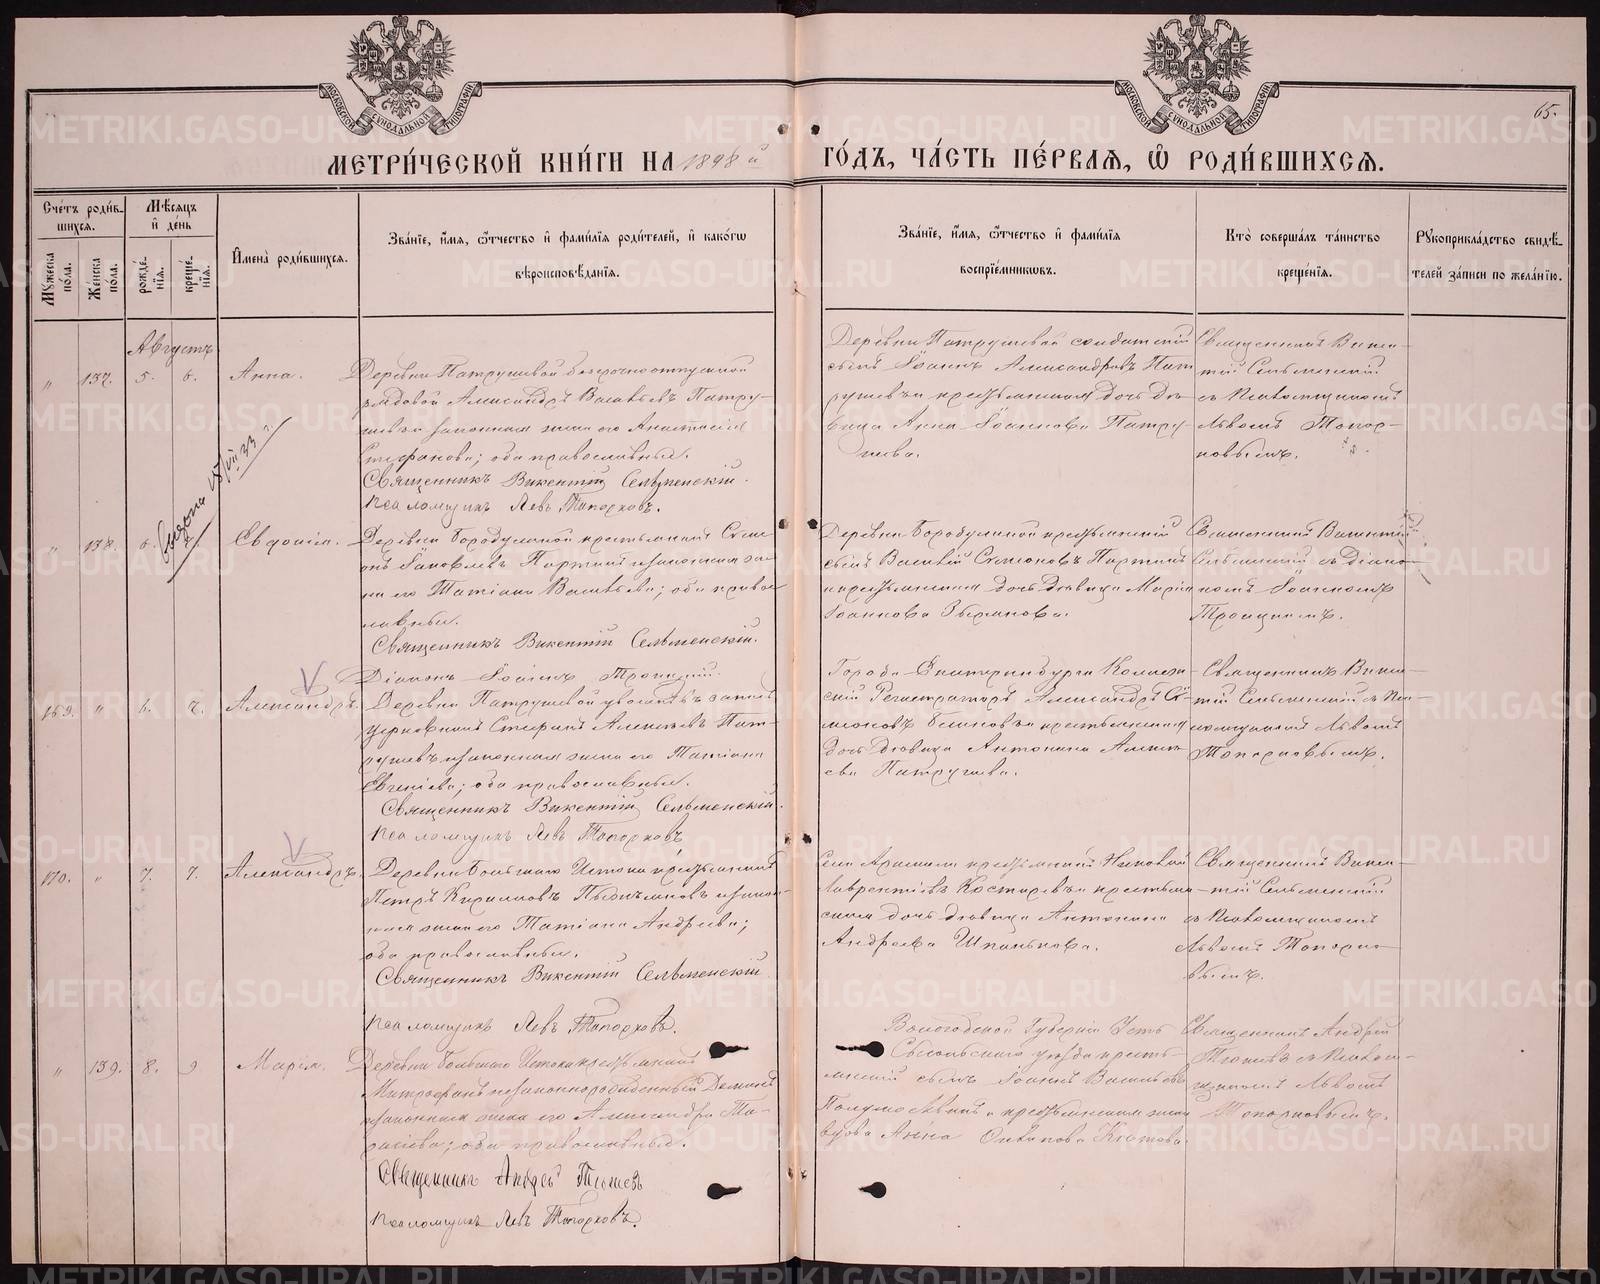 МОСКОВСКОЙ СѴНОДАЛЬНОЙ ТИПОГРАФІИ
МОСКОВСКОЙ СѴНОДАЛЬНОЙ ТИПОГРАФІИ
65.
МЕТРИ́ЧЕСКОЙ КНИ́ГИ НА 1898 й
ГО́ДЪ, ЧА́СТЬ ПЕ́РВАѦ, Ѡ҆ РОДИ́ВШИХСѦ.
Сче́тъ роди́в-
шихсѧ.
Мꙋжеска по́ла.
Же́нска по́ла.
Мѣ́сѧцъ и҆ де́нь
рожде́-
нїѧ.
креще́-
нїѧ.
И҆мена̀ роди́вшихсѧ.
Зва́нїе, и҆́мѧ, ѻ҆́тчество и҆ фами́лїѧ роди́телей, и҆ како́гѡ
вѣроисповѣ́данїѧ.
Зва́нїе, и҆́мѧ, ѻ҆́тчество и҆ фами́лїѧ
воспрїе́мникѡвъ.
Кто̀ соверша́лъ та́инство
креще́нїѧ.
Рꙋкоприкла́дство свидѣ́-
телей за́писи по жела́нїю.
Августъ
" 137. 5. 6. Анна.
Деревни Патрушевой безсрочноотпускной
рядовой Александръ Васильевъ Патру-
шевъ и законная жена его Анастасія
Стефанова; оба православные.
Священникъ Викентій Сельменскій.
Псаломщикъ Левъ Топорковъ.
Деревни Патрушевой солдатскій
сынъ Іоаннъ Александровъ Пат
рушевъ и крестьянская дочь дѣ-
вица Анна Іоаннова Патру-
шева.
Священникъ Викен-
тій Сельменскій
съ Псаломщикомъ
Львомъ Топор-
ковымъ.
" 138. 6. Евдокія.
Деревни Бородулиной крестьянинъ Симе-
онъ Іаковлевъ Паргинъ и законная же-
на его Татіана Васильева; оба правос-
лавные.
Священникъ Викентій Сельменскій.
Діаконъ Іоаннъ Троицкій.
Деревни Бородулиной крестьянскій
сынъ Василій Симеоновъ Паргинъ
и крестьянская дочь дѣвица Марія
Іоаннова Зырянова.
Священникъ Викентій
Сельменскій съ Діако-
номъ Іоанномъ
Троицкимъ.
169. " 6. 7. Александръ.
Деревни Патрушевой уволенъ въ запасъ
Стефанъ Алексѣевъ Пат-
рушевъ и законная жена его Татіана
Евгеніева; оба православные.
Священникъ Викентій Сельменскій.
Псаломщикъ Левъ Топорковъ
Города Екатеринбурга Коллеж-
скій Регистраторъ Александръ Си-
моновъ и крестьянская
дочь дѣвица Антонина Алексѣ-
ева Патрушева.
Священникъ Викен-
тій Сельменскій съ Пса-
ломщикомъ Львомъ
Топорковымъ.
170. " 7. 7. Александръ.
Деревни Большаго Истока крестьянинъ
Петръ Кирилловъ и закон-
ная жена его Татіана Андреева;
оба православные.
Священникъ Викентій Сельменскій
Псаломщикъ Левъ Топорковъ.
Села Арамили крестьянинъ Николай
Лаврентіевъ Костаревъ и крестьян-
ская дочь дѣвица Антонина
Андреева Шпанькова.
Священникъ Викен-
тій Сельменскій
съ Псаломщикомъ
Львомъ Топорко-
вымъ.
" 139. 8. 9 Марія.
Деревни Большаго Истока крестьянинъ
Митрофанъ незаконнорожденный Деминъ
и законная жена его Александра Та-
расіева; оба православные.
Священникъ Андрей Тюшевъ
Псаломщикъ Левъ Топорковъ.
Вологодской Губерніи Усть
Сысольскаго уѣзда кресть-
янскій сынъ Іоаннъ Васильевъ
и крестьянская жена
вдова Анна Котова.
Священникъ Андрей
Тюшевъ съ Псалом-
щикомъ Львомъ
Топорковымъ.
METRIKI.GASO-URAL.RU